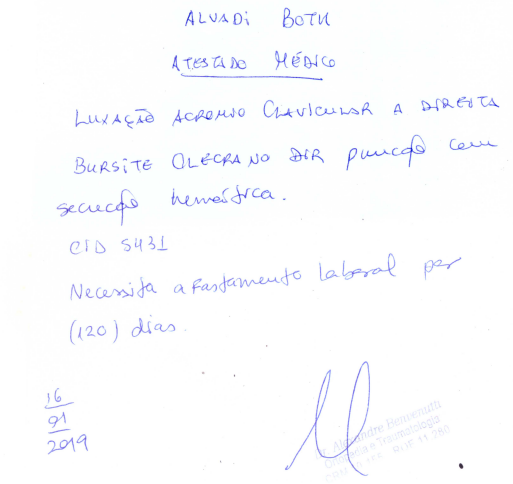 ALVADI BOTH
ATESTADO MÉDICO
LUXAÇÃO ACROMIO CLAVICULAR A DIREITA
BURSITE OLECRANO DIR punção com
secreção hemática.
CID S431
Necessita afastamento laboral por
(120) dias.
16
01
2019
Dr. Alexandre Benvenutti
Ortopedia e Traumatologia